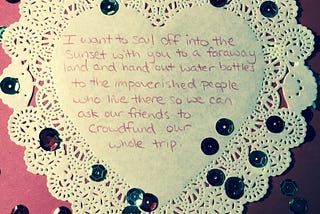 I want to sail off into the
sunset with you to a faraway
land and hand out water bottles
to the impoverished people
who live there so we can
ask our friends to
crowdfund our
whole trip.